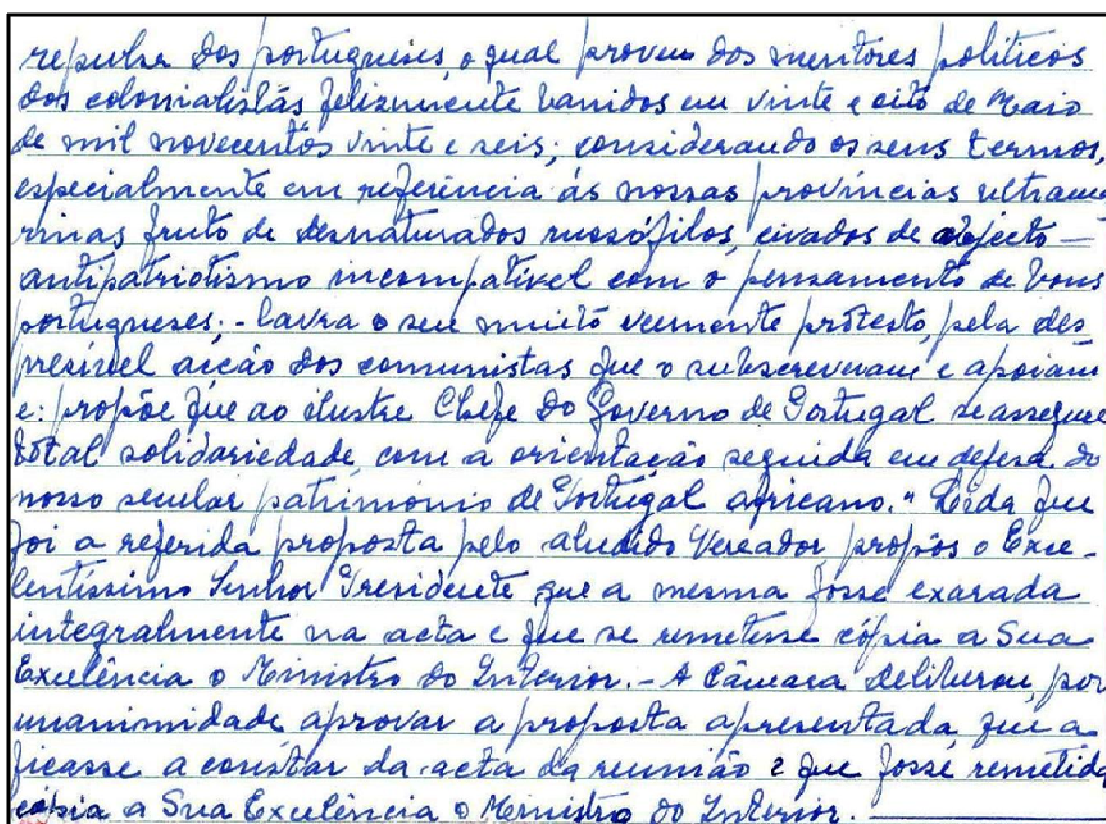 repulsa dos portugueses, o qual proveu dos mentores politicos
dos colonialistas felizmente banidos em vinte e oito de Maio
de mil novecentos vinte e seis; considerando os seus termos,
especialmente em referência ás nossas províncias ultrama
rinas fruto de desnaturados russófilos, eivados de abjecto —
antipatriotismo incompatível com o pensamento de bons
portugueses; - lavra o seu muito veemente protesto, pela des
presível acção dos comunistas que o subscreveram e apoiam
e: propõe que ao ilustre Chefe do Governo de Portugal se assegure
total solidariedade com a orientação seguida em defesa do
nosso secular património de Portugal africano." Lida que
foi a referida proposta pelo aludido Vereador propôs o Exce-
lentíssimo Senhor Presidente que a mesma fosse exarada
integralmente na acta e que se remetesse cópia a Sua
Excelência o Ministro do Interior. - A Câmara deliberou, por
unanimidade aprovar a proposta apresentada que a
ficasse a constar da acta da reunião e que fosse remetida
cópia a Sua Excelência o Ministro do Interior.